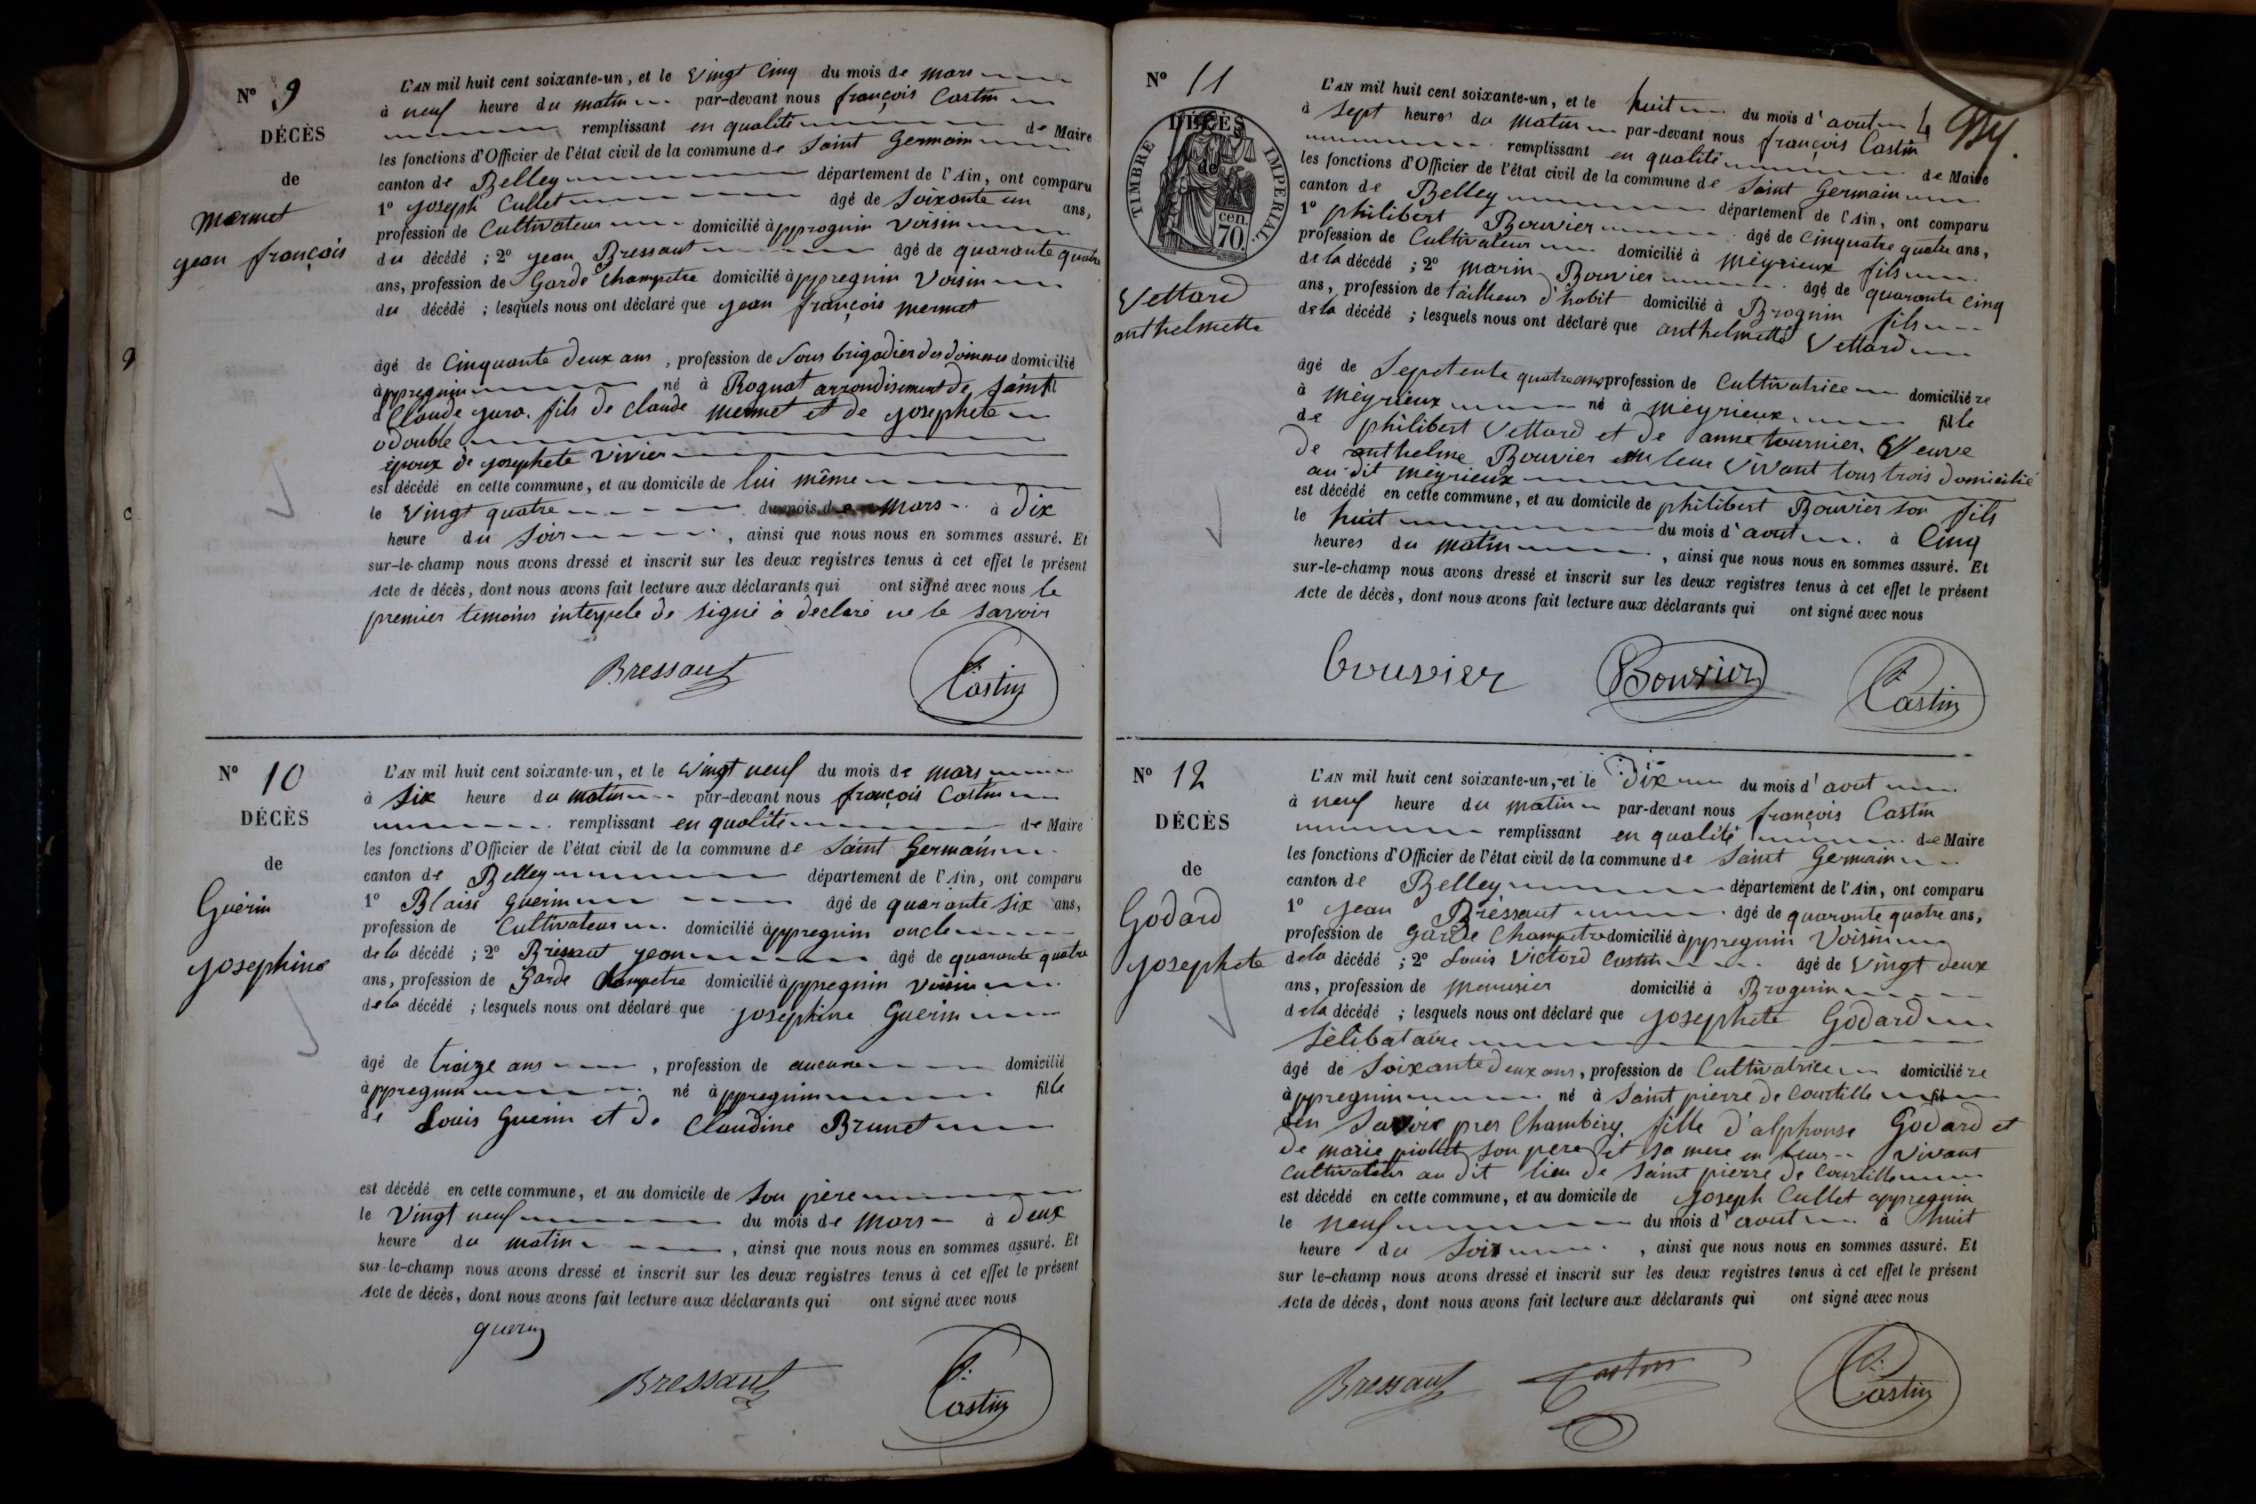 N° 9
DÉCÈS
de
mermet
jean françois
L'AN mil huit cent soixante-un, et le vingt cinq du mois de mars
à neuf heure du matin par-devant nous françois Castin
remplissant en qualité de Maire
les fonctions d'Officier de l'état civil de la commune de Saint Germain
canton de Belley département de l'Ain, ont comparu
1° joseph Cullet âgé de Soixante un ans,
profession de Cultivateur domicilié à appregnin voisin
du décédé ; 2° jean Bressaut âgé de quarante quatre
ans, profession de Garde Champetre domicilié à appregnin Voisin
du décédé ; lesquels nous ont déclaré que jean françois mermet
âgé de Cinquante deux ans, profession de Sous brigadier des doines domicilié
à appregnin né à Rognat arrondisement de saint
Claude jura. fils de claude mermet et de josephete
odouble
époux de josephete vivier
est décédé en cette commune, et au domicile de lui même
le vingt quatre du mois de mars à dix
heure du soir, ainsi que nous nous en sommes assuré. Et
sur-le-champ nous avons dressé et inscrit sur les deux registres tenus à cet effet le présent
Acte de décès, dont nous avons fait lecture aux déclarants qui ont signé avec nous le
premier temoins interpele de signé à declaré ne le savoir
Bressaut
Castin
N° 10
DÉCÈS
de
Guérin
josephine
L'AN mil huit cent soixante-un, et le vingt neuf du mois de mars
à six heure du matin par-devant nous françois Castin
remplissant en qualité de Maire
les fonctions d'Officier de l'état civil de la commune de Saint Germain
canton de Belley département de l'Ain, ont comparu
1° Blaise guerin âgé de quarante six ans,
profession de Cultivateur domicilié à appregnin oncle
de la décédé ; 2° Bressaut jean âgé de quarante quatre
ans, profession de Garde Champetre domicilié à appregnin voisin
de la décédé ; lesquels nous ont déclaré que josephine Guerin
âgé de traize ans, profession de aucune domicilié
à appregnin né à appregnin fille
de Louis Guerin et de Claudine Brunet
est décédé en cette commune, et au domicile de son père
le vingt neuf du mois de mars à deux
heure du matin, ainsi que nous nous en sommes assuré. Et
sur-le-champ nous avons dressé et inscrit sur les deux registres tenus à cet effet le présent
Acte de décès, dont nous avons fait lecture aux déclarants qui ont signé avec nous
guerin
Bressaut
Castin
N° 11
DÉCÈS
de
TIMBRE IMPERIAL.
cen.
70
Vettard
anthelmette
L'AN mil huit cent soixante-un, et le huit du mois d'aout
à sept heures du matin par-devant nous françois Castin
remplissant en qualité de Maire
les fonctions d'Officier de l'état civil de la commune de Saint Germain
canton de Belley département de l'Ain, ont comparu
1° philibert Bouvier âgé de cinquatre quatre ans,
profession de Cultivateur domicilié à mèyrieux fils
de la décédé ; 2° marin Bouvier âgé de quarante cinq
ans, profession de tailleur d'habit domicilié à Brognin fils
de la décédé ; lesquels nous ont déclaré que anthelmette Vettard
âgé de Sepetente quatre ans profession de Cultivatrice domiciliére
à mèyrieux né à mèyrieux fille
de philibert Vettard et de anne tournier. Veuve
de anthelme Bouvier en leur vivant tous trois domicilié
au dit mèyrieux
est décédé en cette commune, et au domicile de philibert Bouvier son fils
le huit du mois d'aout à Cinq
heures du matin, ainsi que nous nous en sommes assuré. Et
sur-le-champ nous avons dressé et inscrit sur les deux registres tenus à cet effet le présent
Acte de décès, dont nous avons fait lecture aux déclarants qui ont signé avec nous
bouvier
Bouvier
Castin
N° 12
DÉCÈS
de
Godard
josephete
L'AN mil huit cent soixante-un, et le Dix du mois d'aout
à neuf heure du matin par-devant nous françois Castin
remplissant en qualité de Maire
les fonctions d'Officier de l'état civil de la commune de Saint Germain
canton de Belley département de l'Ain, ont comparu
1° jean Bressaut âgé de quarante quatre ans,
profession de garde Champetre domicilié à appregnin Voisin
de la décédé ; 2° Louis Victord Castin âgé de vingt deux
ans, profession de menuisier domicilié à Brognin
de la décédé ; lesquels nous ont déclaré que josephete Godard
sélibataire
âgé de Soixante deux ans, profession de Cultivatrice domiciliére
à appregnin né à Saint pierre de Courtille fil
en Savoie pres Chambéry. fille d'alphonse Godard et
de marie piollet son pere et sa mere en leur vivant
cultivateur au dit lieu de saint pierre de Courtille
est décédé en cette commune, et au domicile de joseph Cullet appregnin
le neuf du mois d'aout à huit
heure du Soir, ainsi que nous nous en sommes assuré. Et
sur le-champ nous avons dressé et inscrit sur les deux registres tenus à cet effet le présent
Acte de décès, dont nous avons fait lecture aux déclarants qui ont signé avec nous
Bressaut
Castin
Castin